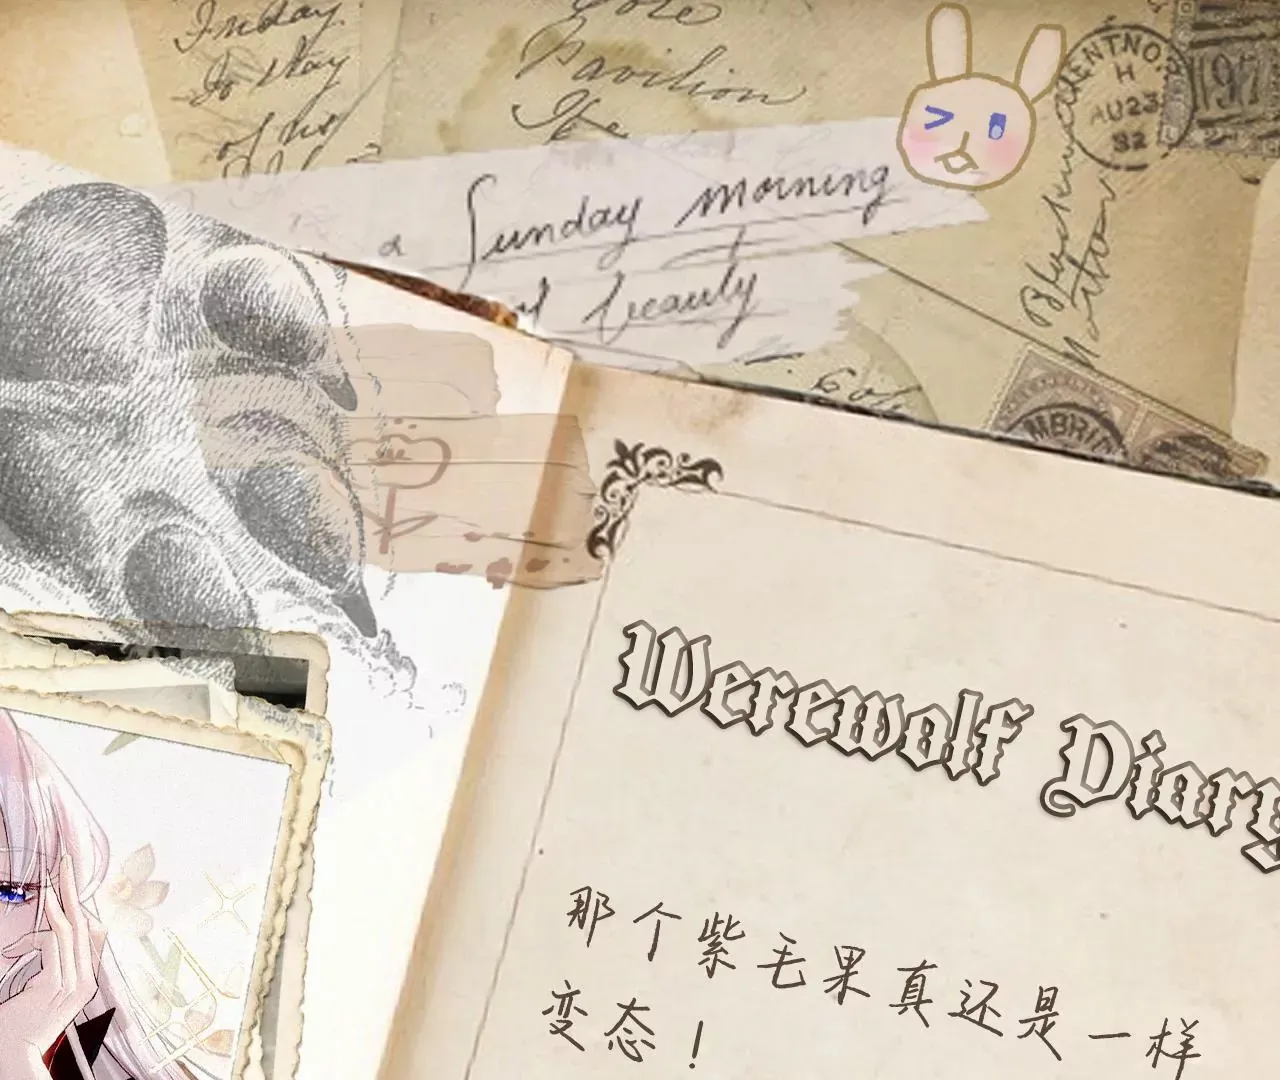 Sunday
To stay
of us
Pavilion
The
a Sunday morning
of beauty
ENTNO.
H
AU23
82
197
MBRI
Werewolf Diary
那个紫毛果真还是一样
变态！